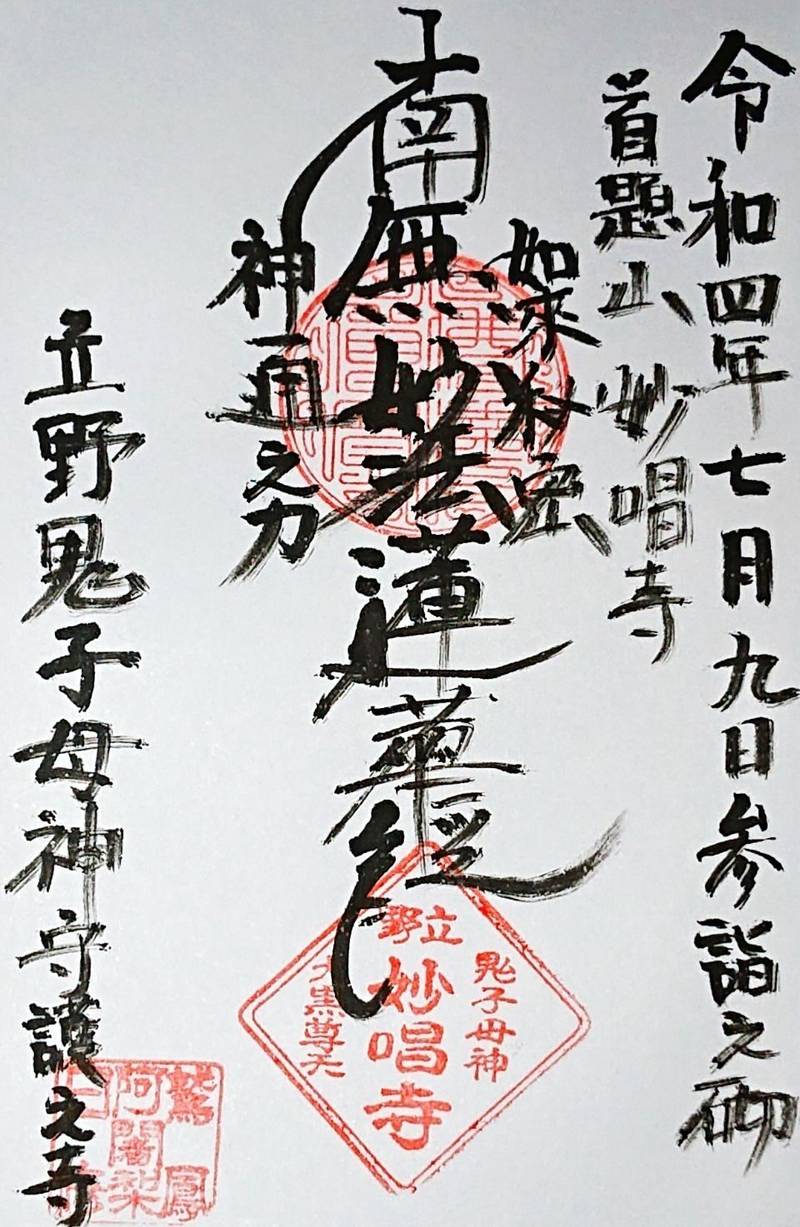 令和四年七月九日参詣之砌
首題山妙唱寺
如来秘密
南無妙法蓮華経
神通之力
立野鬼子母神守護之寺
鬼子母神
立野
妙唱寺
大黒尊天
鷲鳳
阿闍梨